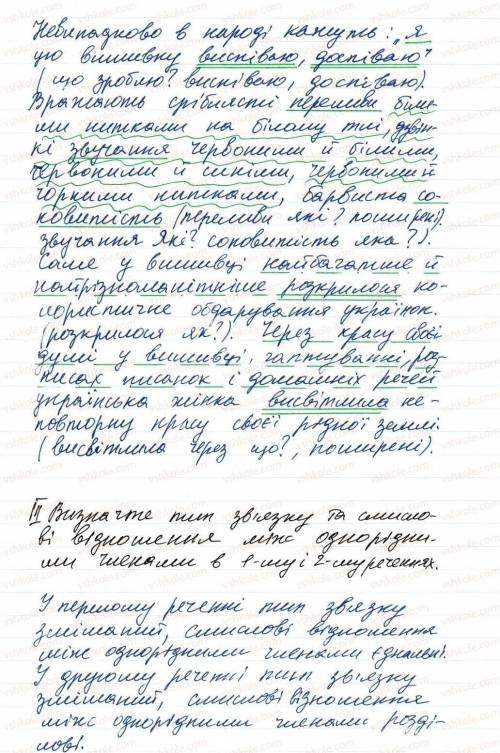 Невипадково в народі кажуть: „Я
цю вишивку виспіваю, доспіваю"
(що зроблю? виспіваю, доспіваю).
Вражають сріблясті переливи біли-
ми нитками на білому тлі, дзвін-
кі звучання червоними й білими,
червоними й синіми, червоними й
чорними нитками, барвиста со-
ковитість (переливи які? поширені).
звучання Які? соковитість яка?).
Саме у вишивці найбагатше й
найрізноманітніше розкрилося ко-
лористичне обдарування українок.
(розкрилося як?). Через красу своєї
думі у вишивці, гаптуванні, роз-
писах писанок і домашніх речей
українська жінка висвітлила не-
повторну красу своєї рідної землі
(висвітлила через що?, поширені).
III Визначте тип зв'язку та смисло-
ві відношення між однорідни-
ми членами в 1-му і 2-му реченнях.
У першому реченні тип зв'язку
змішаний, смислові відношення
між однорідними членами єднальні.
У другому речені тип зв'язку
змішаний, смислові відношення
між однорідними членами розді-
лові.
vshkole.com